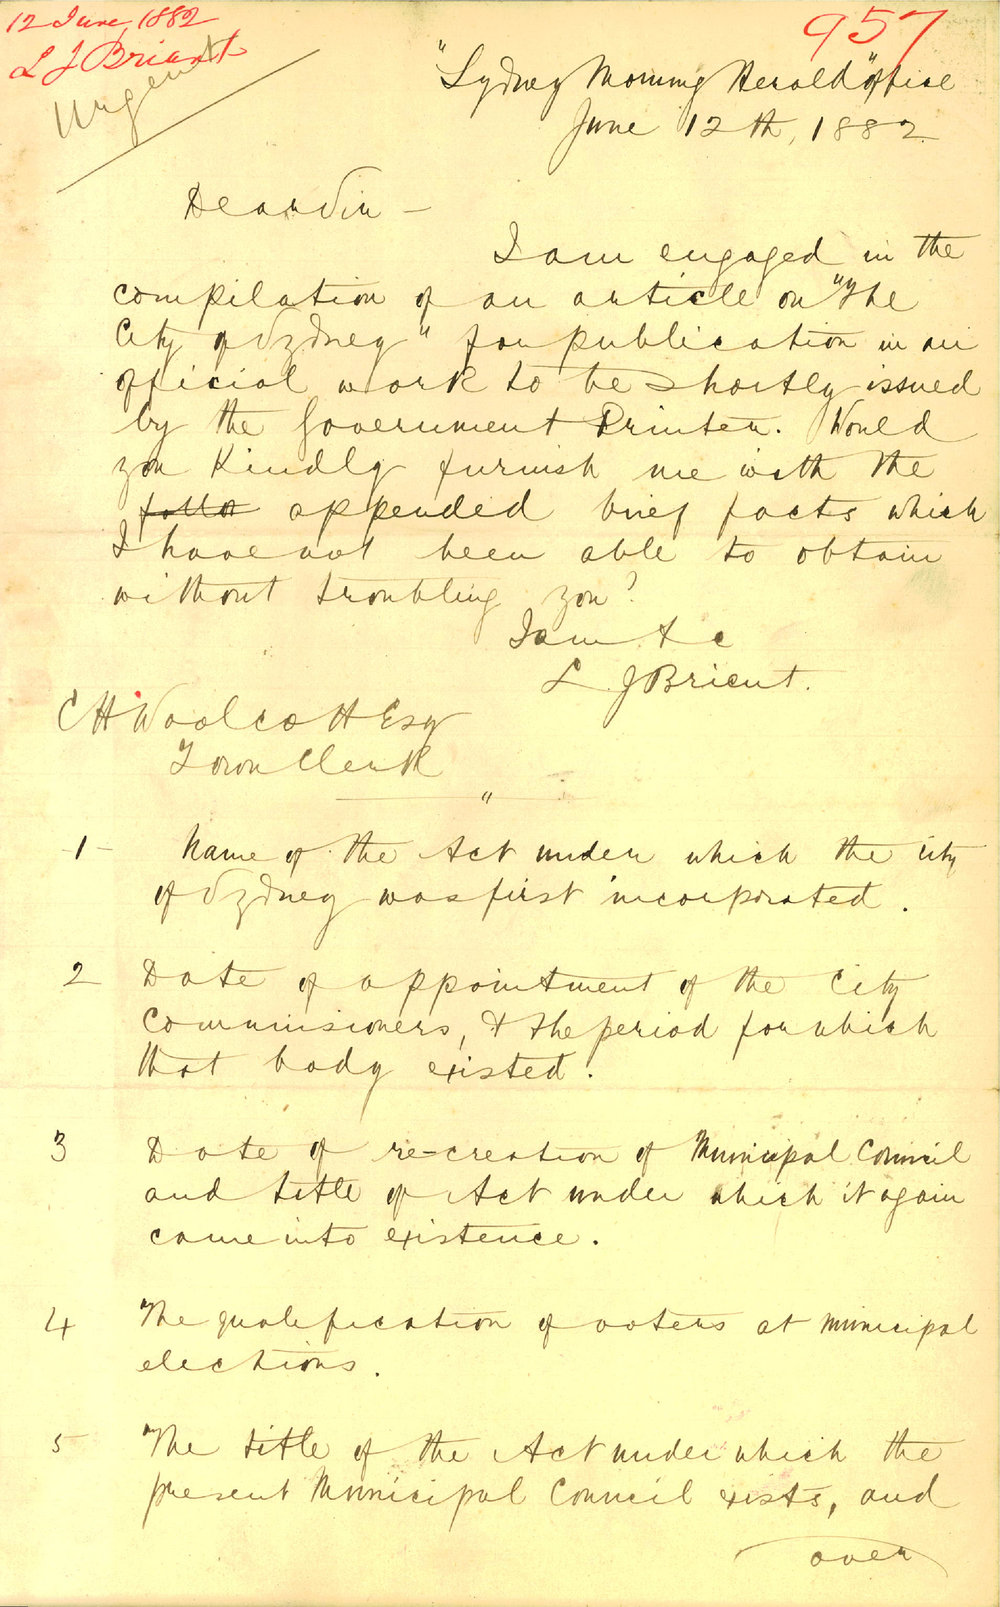 12 June 1882
L J Brient
957
Urgent
"Sydney Morning Herald" Office
June 12th, 1882.
Dear Sir –
I am engaged in the
compilation of an article on "The
City of Sydney" for publication in an
official work to be shortly issued
by the Government Printer. Would
you kindly furnish me with the
follo appended brief facts which
I have not been able to obtain
without troubling you?
I am &c
L. J Brient.
C H Woolcott Esq
Town Clerk
"
-1- Name of the Act under which the city
of Sydney was first incorporated.
2 Date of appointment of the City
Commissioners, & the period for which
that body existed.
3 Date of re-creation of Municipal Council
and title of Act under which it again
came into existence.
4 The qualification of voters at municipal
elections.
5 The title of the Act under which the
present Municipal Council exists, and
over